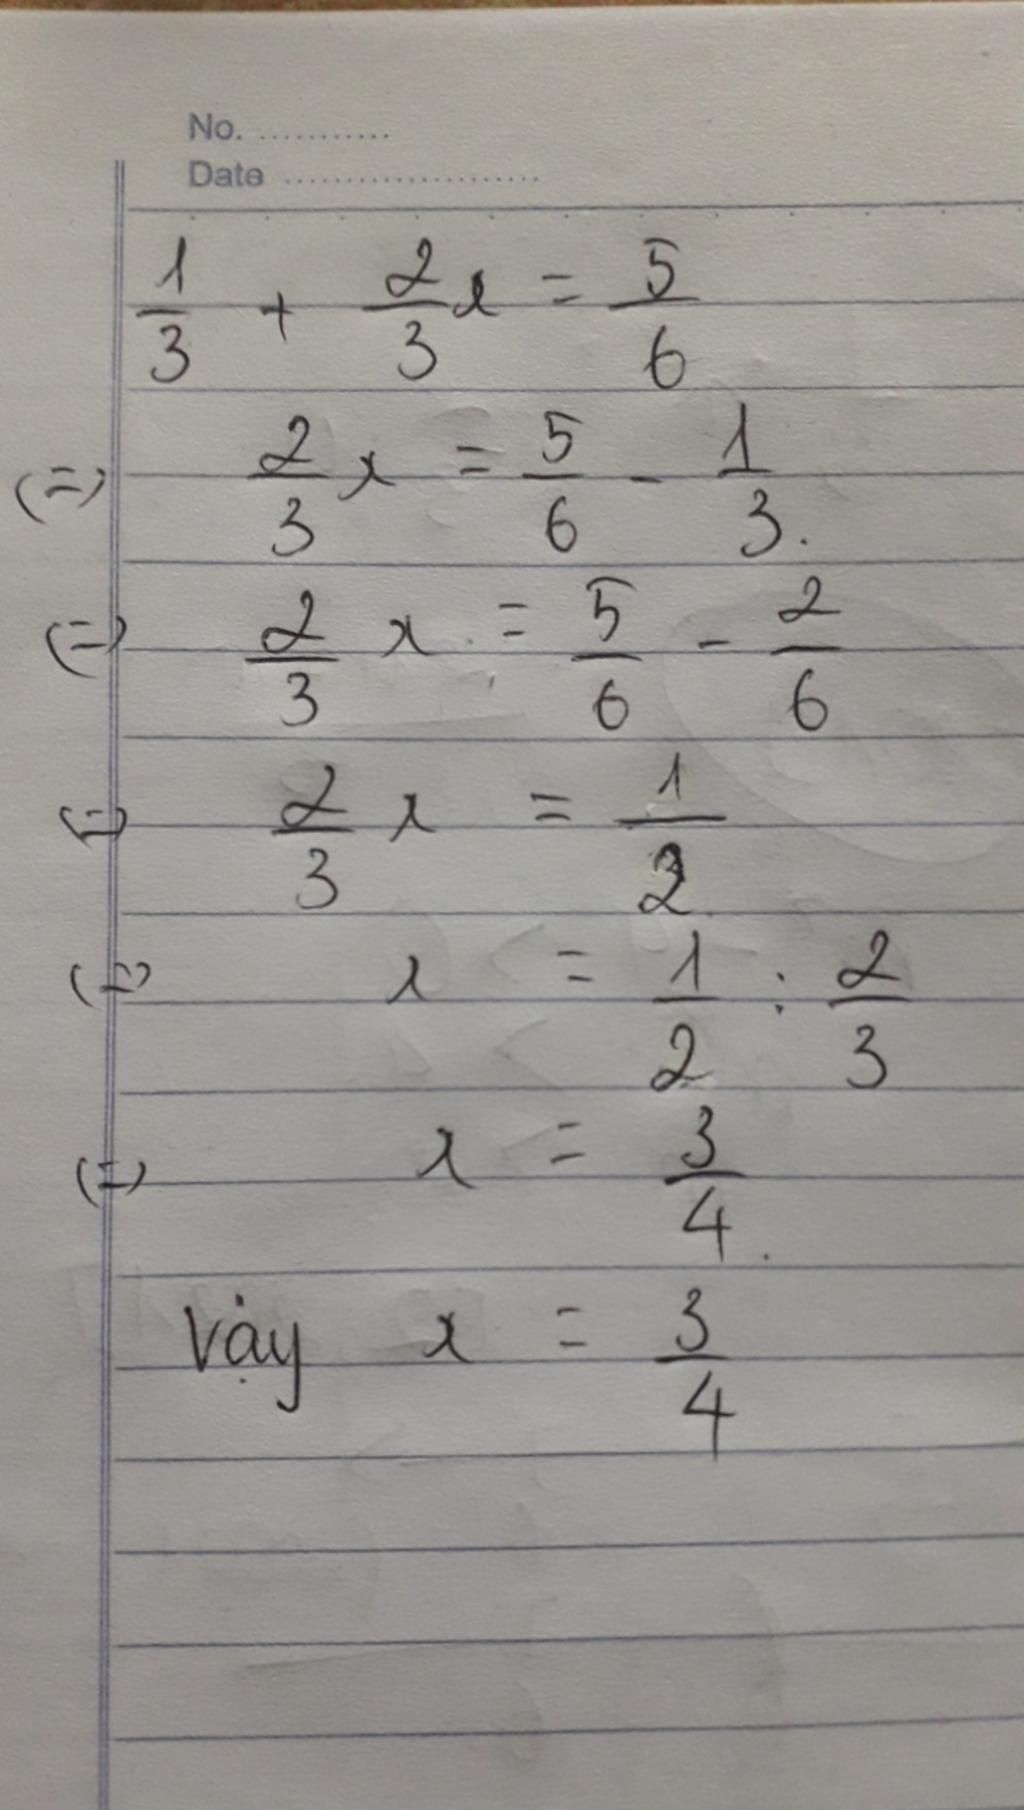 No. ...........
Date .....................
1/3 + 2/3 x = 5/6
(=) 2/3 x = 5/6 - 1/3.
(=) 2/3 x = 5/6 - 2/6
(=) 2/3 x = 1/2
(=) x = 1/2 : 2/3
(=) x = 3/4.
Vậy x = 3/4